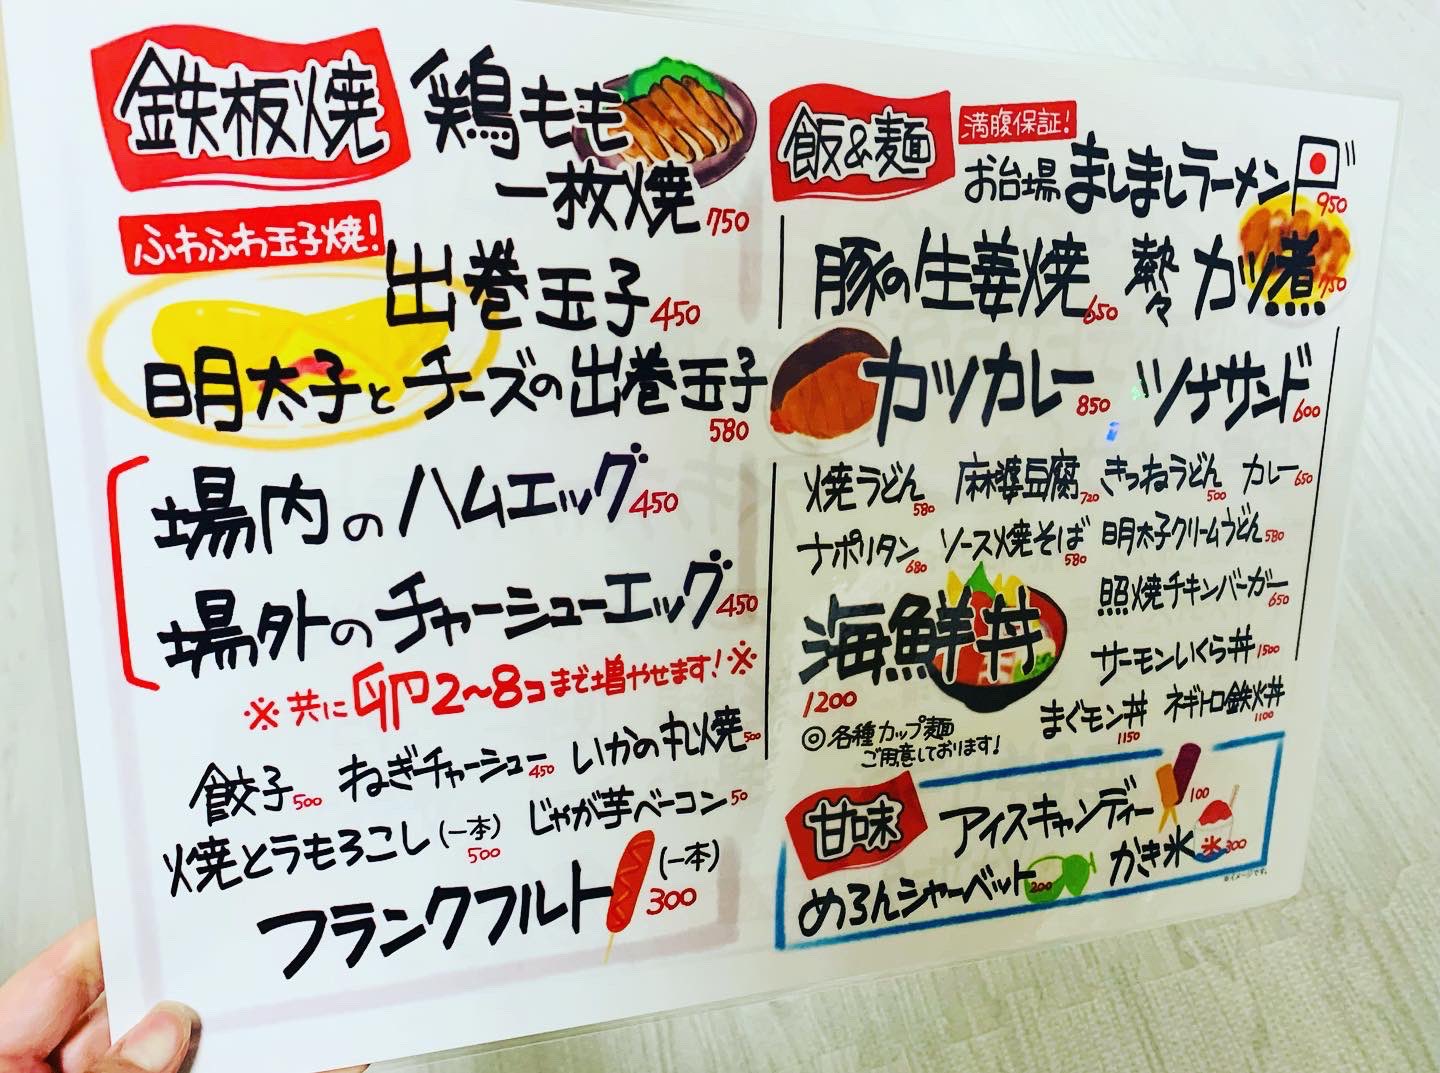 鉄板焼
鶏もも
一枚焼 750
ふわふわ玉子焼!
出巻玉子 450
明太子とチーズの出巻玉子
580
場内のハムエッグ 450
場外のチャーシューエッグ 450
※共に卵2〜8コまで増やせます!※
餃子 500 ねぎチャーシュー 450 いかの丸焼 500
焼とうもろこし(一本) 500 じゃが芋ベーコン 50
フランクフルト (一本) 300
飯&麺
満腹保証!
お台場ましましラーメン 950
豚の生姜焼 650 熱々カツ煮 750
カツカレー 850 ツナサンド 600
焼うどん 580 麻婆豆腐 720 きつねうどん 500 カレー 650
ナポリタン 680 ソース焼そば 580 明太子クリームうどん 580
海鮮丼 1200
照焼チキンバーガー 650
サーモンいくら丼 1500
まぐモン丼 1150 ネギトロ鉄火丼 1100
◎各種カップ麺
ご用意しております!
甘味
アイスキャンディー 100
めろんシャーベット 200 かき氷 300
氷
※イメージです。